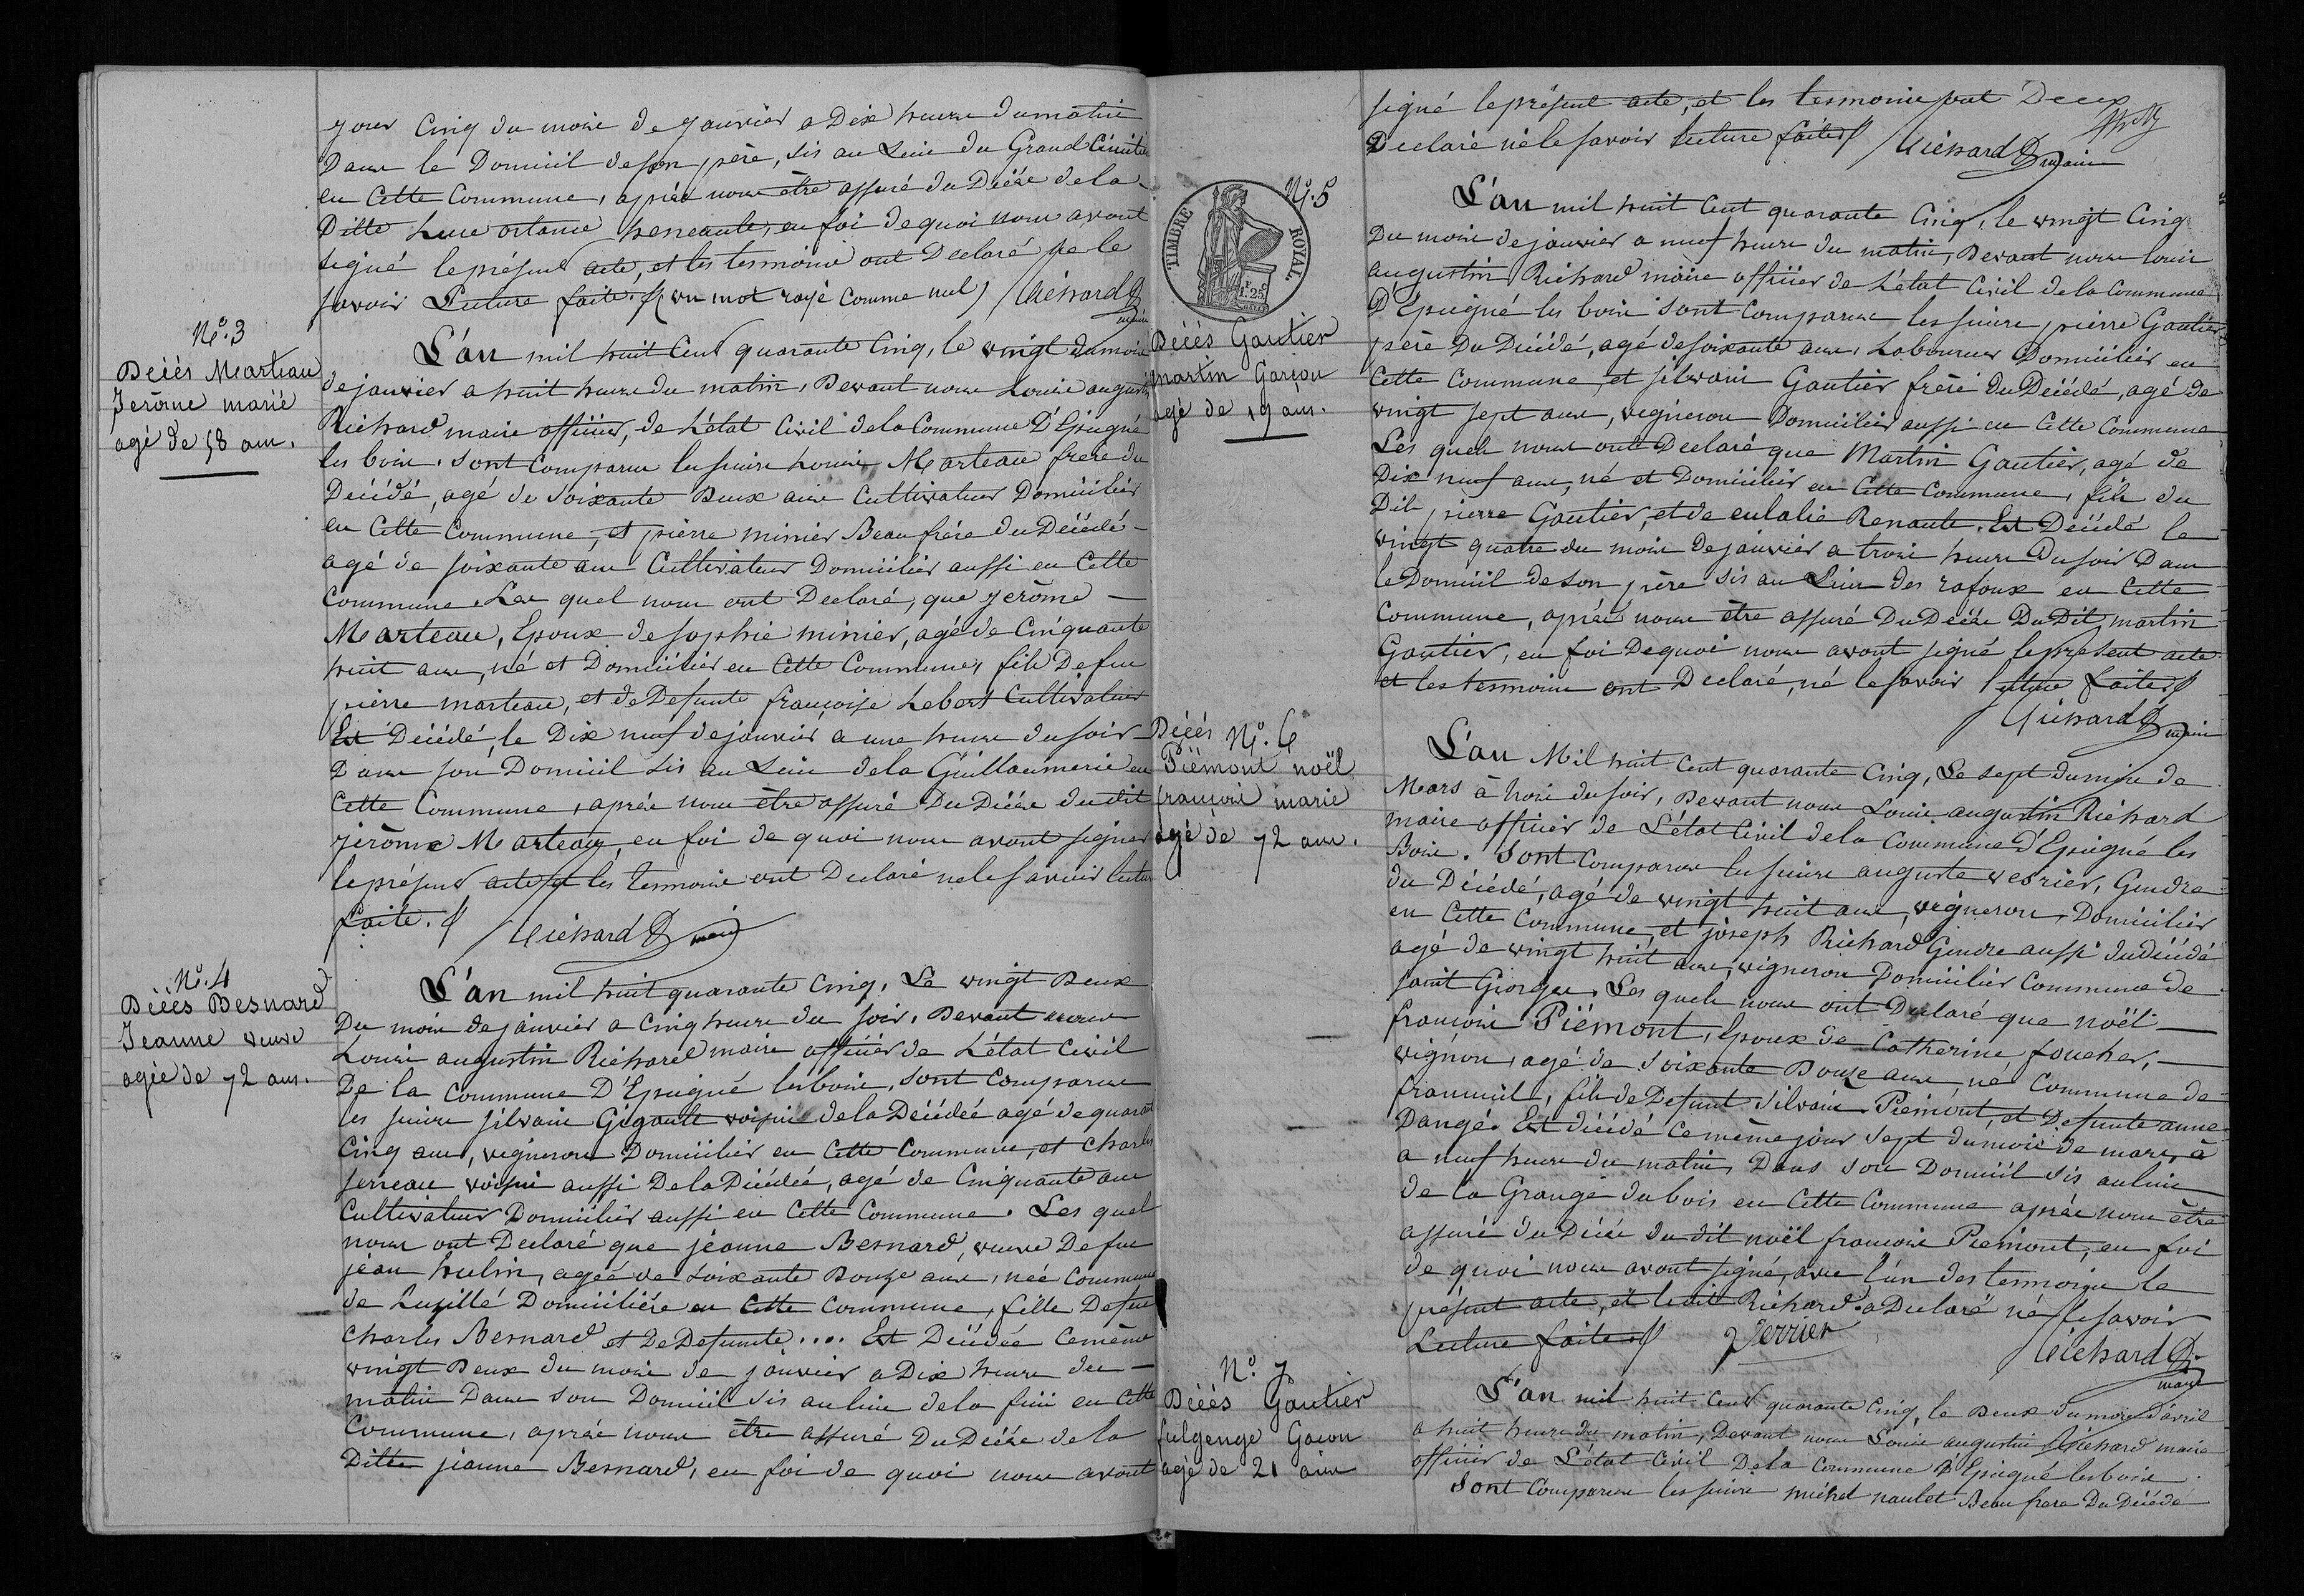 jour Cinq du moire de janvier a Dix heure du matin
Dans le Domiiil de son père, sis au Lieu du Grand Cimitie
en Cette Commune, aprés nous être assuré du Décée de la
Ditte heneaute, en foi de quoi nous avont
signé leprésent acte, et les tesmoins ont Declaré ne le
savoir Lecture faite. (un mot rayé comme nul) Richard
maire
N°. 3
Décés Marteau
Jerôme marié
agé de 58 ans.
L'an mil huit Cent quarante Cinq, le vingt du mois
de janvier a huit heure du matin, Devant nous Louis augustin
Richard maire officier, de L'état Civil de la Commune D'Epeigné
les bois. Sont Comparus les sieurs Louis Marteau frere du
Décédé, agé de Soixante Deux ans Cultivateur Domicilier
en Cette Commune, et pierre minier Beaufrére du Décédé
agé de soixante ans Cultivateur Domicilier aussi en Cette
Commune. Les quel nous ont Declaré, que jerôme
Marteau, Epoux de sophie minier, agé de Cinquante
huit ans, né et Domicilier en Cette Commune, fils De feu
pierre marteau, et de Defunte françoise Lebert Cultivateur
Est Décédé, le Dix neuf de janvier a une heure du soir
Dans son Domicil sis au Lieu de la Guillaumerie en
Cette Commune, aprés nous être assuré Du Décée du dit
jérôme Marteau, en foi de quoi nous avont signer
leprésent acte et les tesmoins ont Declaré ne le savoir lecture
faite. Richard maire
N°. 4
Décés Besnard
Jeanne veuve
agée de 72 ans.
L'an mil huit quarante Cinq, Le vingt Deux
Du mois de janvier a Cinq heure du soir, Devant nous
Louis augustin Richard maire officier de L'état Civil
De la Commune D'Epeigné les bois, sont Comparus
les sieurs silvain Gigault voisin de la Décédée agé de quarante
Cinq ans, vigneron Domicilier en Cette Commune, et Charles
serreau voisin aussi De la Décédée, agé de Cinquante ans
Cultivateur Domicilier aussi en Cette Commune. Les quel
nous ont Declaré que jeanne Besnard, veuve De feu
jean hulin, agée de soixante Douze ans, née Commune
de Luzillé Domicilière en Cette Commune, fille De feu
Charles Besnard et De Defunte.... Est Décédée Cemême
vingt Deux du mois de janvier a Dix heure du
matin Dans son Domicil sis aulieu de la en Cette
Commune, aprés nous être assuré Du Décée de la
Ditte jeanne Besnard, en foi de quoi nous avont
signé leprésent acte, et les tesmoins ont Deux
Declaré né le savoir lecture faite Richard maire
TIMBRE ROYAL
1F. 25C
N°. 5
Décés Gautier
martin Garçon
agé de 19 ans.
L'an mil huit Cent quarante Cinq, le vingt Cinq
Du mois de janvier a neuf heure du matin, Devant nous louis
augustin Richard maire officier de L'état Civil de la Commune
D'Epeigné les bois Sont Comparus les sieurs pierre Gautier
père Du Décédé, agé de soixante ans, Laboureur Domicilier en
Cette Commune, et silvain Gautier frère du Décédé, agé de
vingt sept ans, vigneron Domicilier aussi en Cette Commune
Les quels nous ont Declaré que Martin Gautier, agé de
Dix neuf ans, né et Domicilier en Cette Commune, fils du
Dit pierre Gautier, et de eulalie Renault. Est Décédé le
vingt quatre du mois de janvier a trois heure Du soir Dans
le Domicil de son père sis au Lieu des rafoux en Cette
Commune, aprés nous être assuré Du Décée Du Dit, martin
Gautier, en foi De quoi nous avont signé le présent acte
et les tesmoins ont Declaré, né le savoir lecture faite
Richard maire
Décés N°. 6
Piémont noël
françois marié
agé de 72 ans.
L'an Mil huit Cent quarante Cinq, Le sept du mois de
Mars à trois du soir, Devant nous Louis augustin Richard
maire officier de L'état Civil de la Commune d'Epeigné les
Bois. Sont Comparus les sieurs auguste verrier, Gendre
du Décédé, agé de vingt huit ans, vigneron, Domicilier
en Cette Commune, et joseph Richard Gendre aussi du décédé
agé de vingt huit ans, vigneron Domicilier Commune de
saint Giorges. Les quels nous ont Declaré que noël
françois Piémont, Epoux de Catherine foucher,
vignron, agé de soixante Douze ans, né Commune de
francuil, fils de Defunt silvain Piémont, et Defunte anne
Dangé. Est décédé ce même jour sept du mois de mars, à
a neuf heure du matin, Dans son Domicil sis aulieu
de la Grange du bois en Cette Commune aprés nous être
assuré du Décée du dit noël françois Piemont, en foi
de quoi nous avont signé, avec l'un des tesmoins le
présent acte, et ledit Richard. a Declaré né le savoir
Lecture faite Verrier
Richard
maire
N°. 7
Décés Gautier
fulgenge Gacon
agé de 21 ans
L'an mil huit Cent quarante Cinq, le Deux du mois d'avril
a huit heure du matin, Devant nous Louis augustin Richard maire
officier de L'état Civil De la Commune d'Epeigné les bois
Sont Comparus les sieurs michel naulet Beau frere Du Décédé